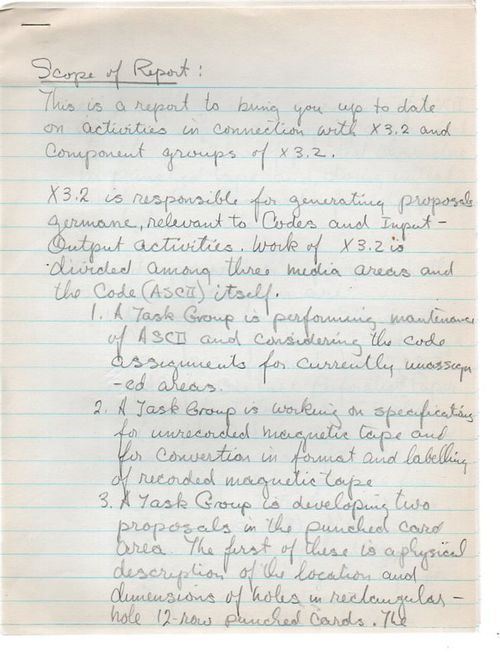 Scope of Report:
This is a report to bring you up to date
on activities in connection with X3.2 and
Component groups of X3.2.
X3.2 is responsible for generating proposals
germane, relevant to Codes and Input-
Output activities. Work of X3.2 is
divided among three media areas and
the Code (ASCII) itself.
1. A Task Group is performing maintenance
of ASCII and considering the code
assignments for currently unassign
-ed areas.
2. A Task Group is working on specifications
for unrecorded magnetic tape and
for convertion in format and labelling
of recorded magnetic tape
3. A Task Group is developing two
proposals in the punched card
area. The first of these is a physical
description of the location and
dimensions of holes in rectangular-
hole 12-row punched cards. The